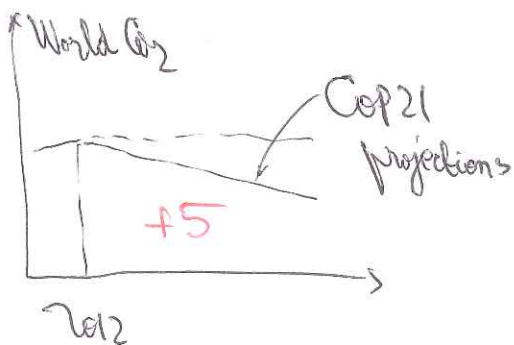 World CO₂
COP21
projections
+5
2012